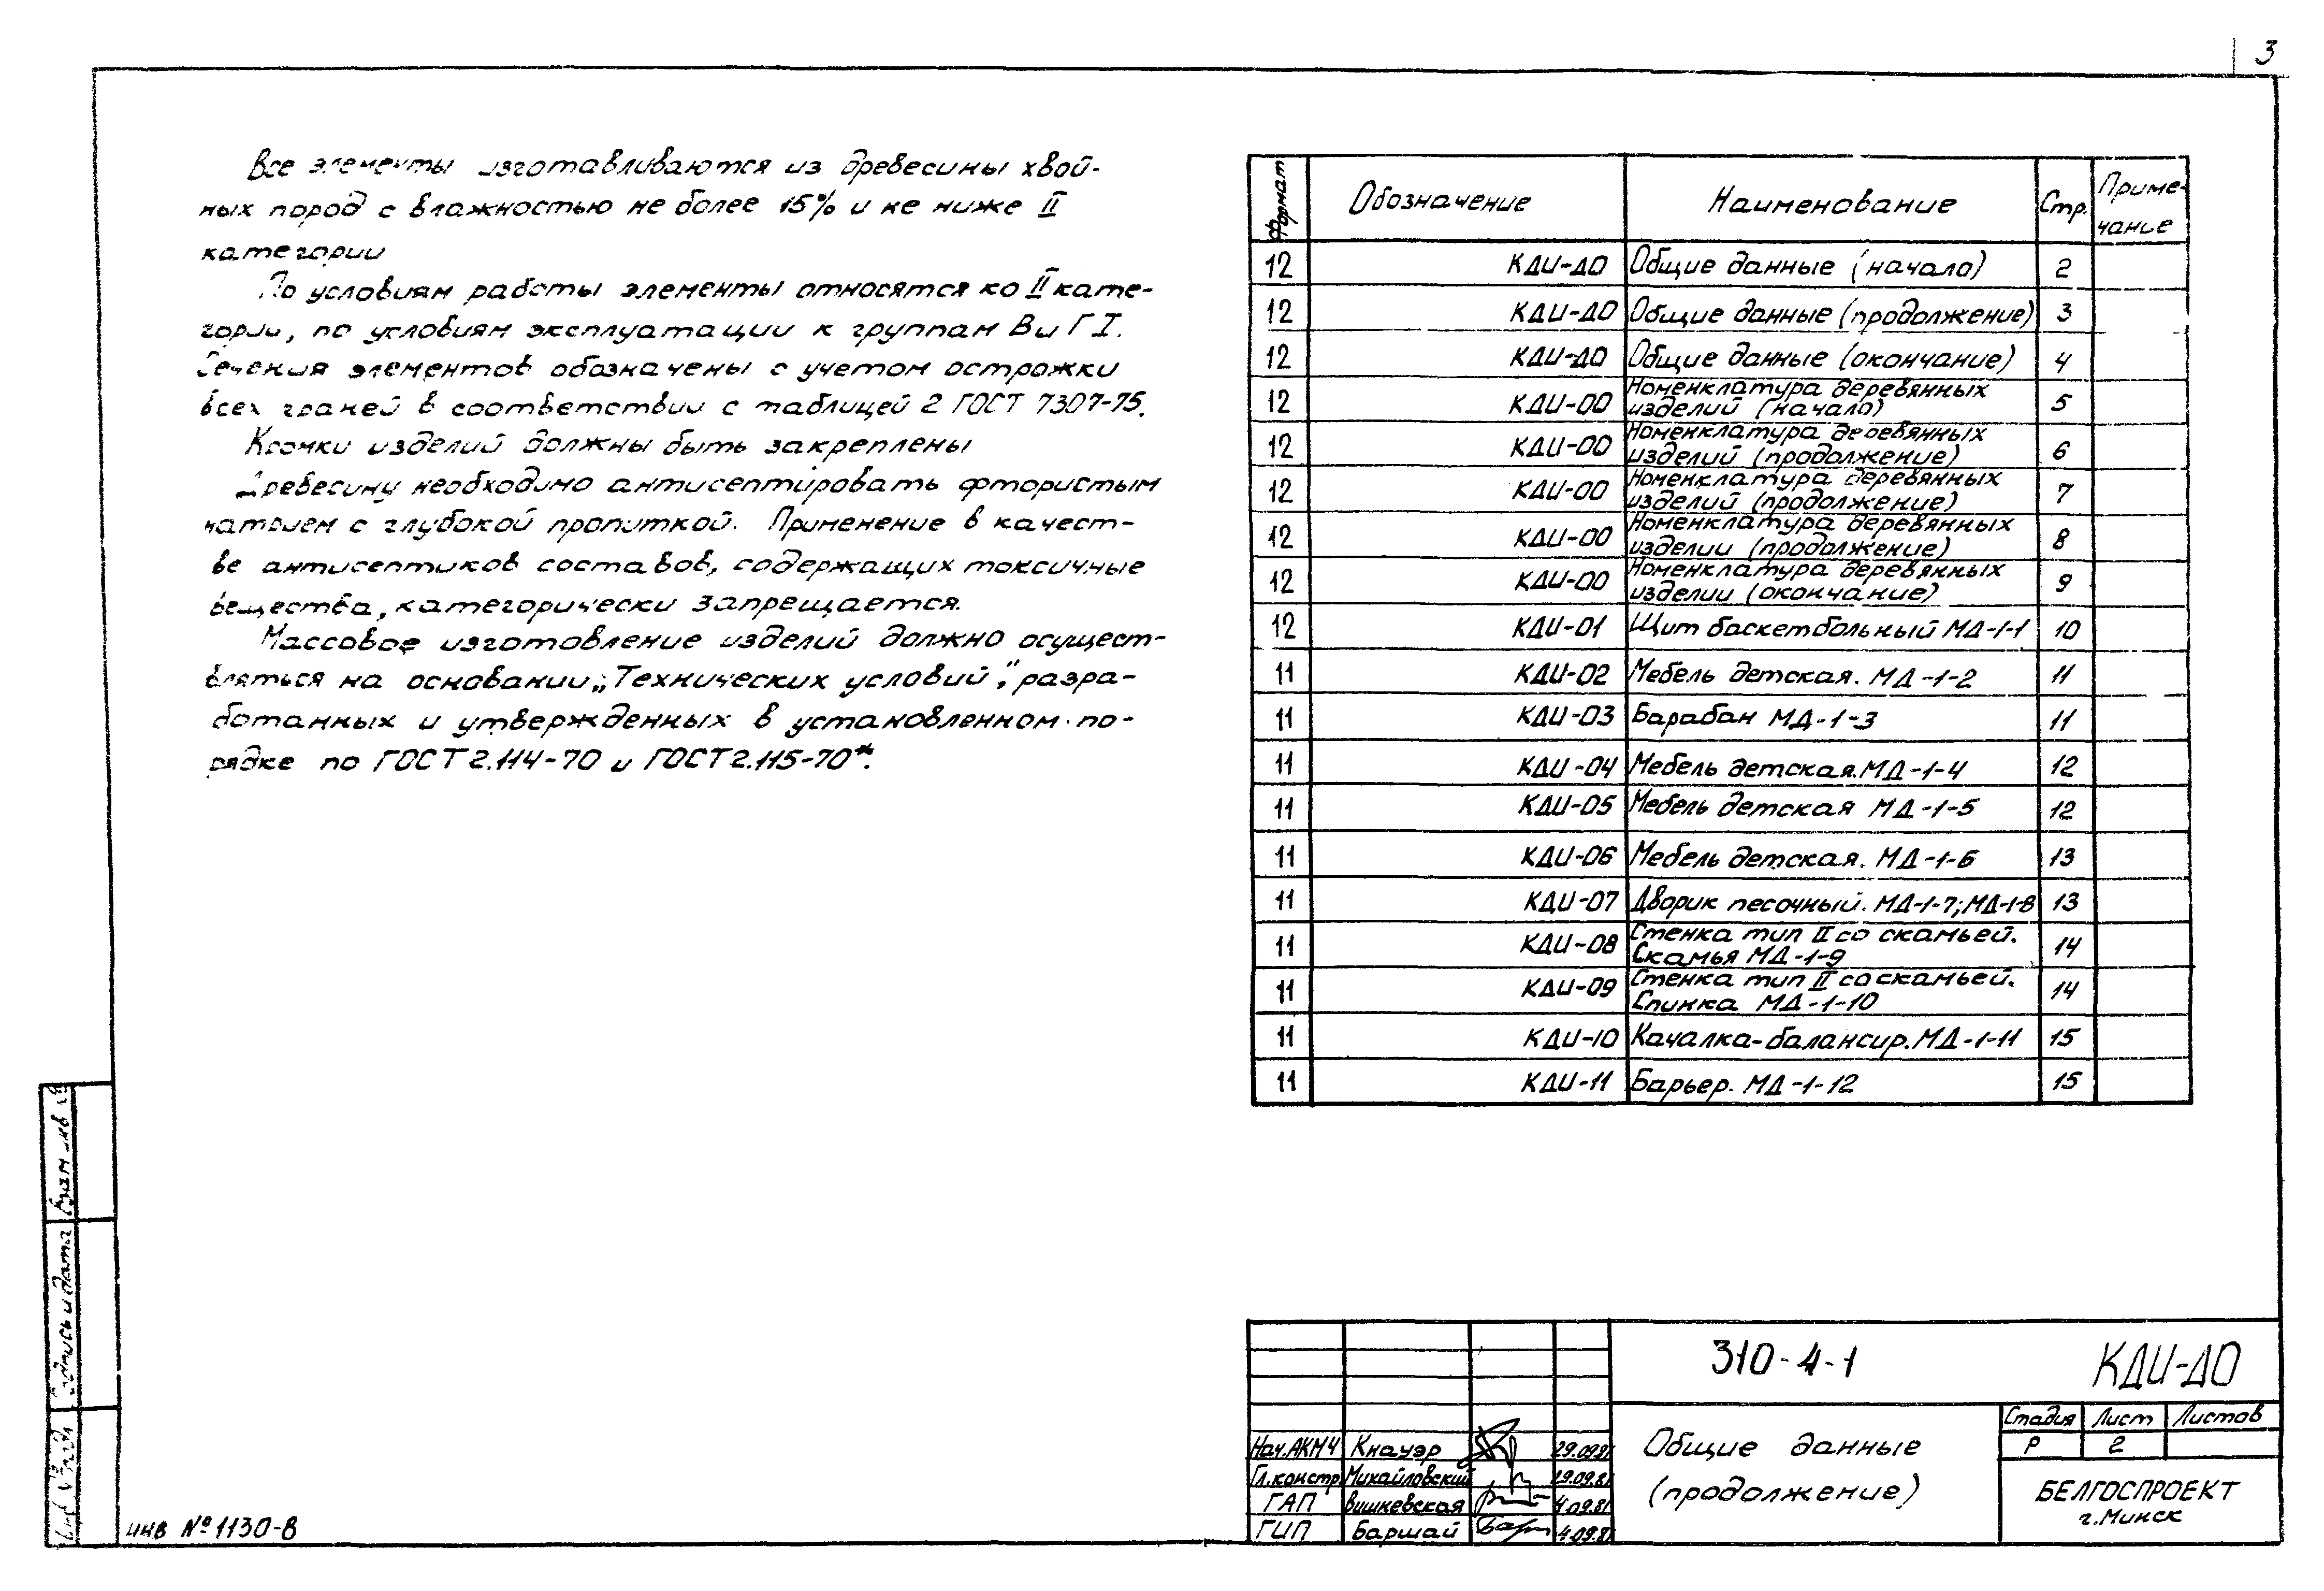 3
Все элементы изготавливаются из древесины хвой-
ных пород с влажностью не более 15% и не ниже II
категории
По условиям работы элементы относятся ко II кате-
гории, по условиям эксплуатации к группам В и Г I.
Сечения элементов обозначены с учетом острожки
всех граней в соответствии с таблицей 2 ГОСТ 7307-75.
Кромки изделий должны быть закреплены
Древесину необходимо антисептировать фтористым
натрием с глубокой пропиткой. Применение в качест-
ве антисептиков составов, содержащих токсичные
вещества, категорически запрещается.
Массовое изготовление изделий должно осущест-
вляться на основании „Технических условий", разра-
ботанных и утвержденных в установленном по-
рядке по ГОСТ 2.114-70 и ГОСТ 2.115-70*.
Формат Обозначение Наименование Стр. Приме-
чание
12 КДИ-ДО Общие данные (начало) 2
12 КДИ-ДО Общие данные (продолжение) 3
12 КДИ-ДО Общие данные (окончание) 4
12 КДИ-00 Номенклатура деревянных
изделий (начало) 5
12 КДИ-00 Номенклатура деревянных
изделий (продолжение) 6
12 КДИ-00 Номенклатура деревянных
изделий (продолжение) 7
12 КДИ-00 Номенклатура деревянных
изделии (продолжение) 8
12 КДИ-00 Номенклатура деревянных
изделии (окончание) 9
12 КДИ-01 Щит баскетбольный МД-1-1 10
11 КДИ-02 Мебель детская. МД-1-2 11
11 КДИ-03 Барабан МД-1-3 11
11 КДИ-04 Мебель детская. МД-1-4 12
11 КДИ-05 Мебель детская МД-1-5 12
11 КДИ-06 Мебель детская. МД-1-6 13
11 КДИ-07 Дворик песочный. МД-1-7; МД-1-8 13
11 КДИ-08 Стенка тип II со скамьей.
Скамья МД-1-9 14
11 КДИ-09 Стенка тип II со скамьей.
Спинка МД-1-10 14
11 КДИ-10 Качалка-балансир. МД-1-11 15
11 КДИ-11 Барьер. МД-1-12 15
310-4-1 КДИ-ДО
Нач. АКМ4 Кнауэр 29.09.81
Гл. констр. Михайловский 29.09.81
ГАП Вишневская 4.09.81
ГИП Баршай 4.09.81
Общие данные
(продолжение)
Стадия Лист Листов
Р 2
БЕЛГОСПРОЕКТ
г. Минск
Взам инв
Подпись и дата
инв № 1130-В